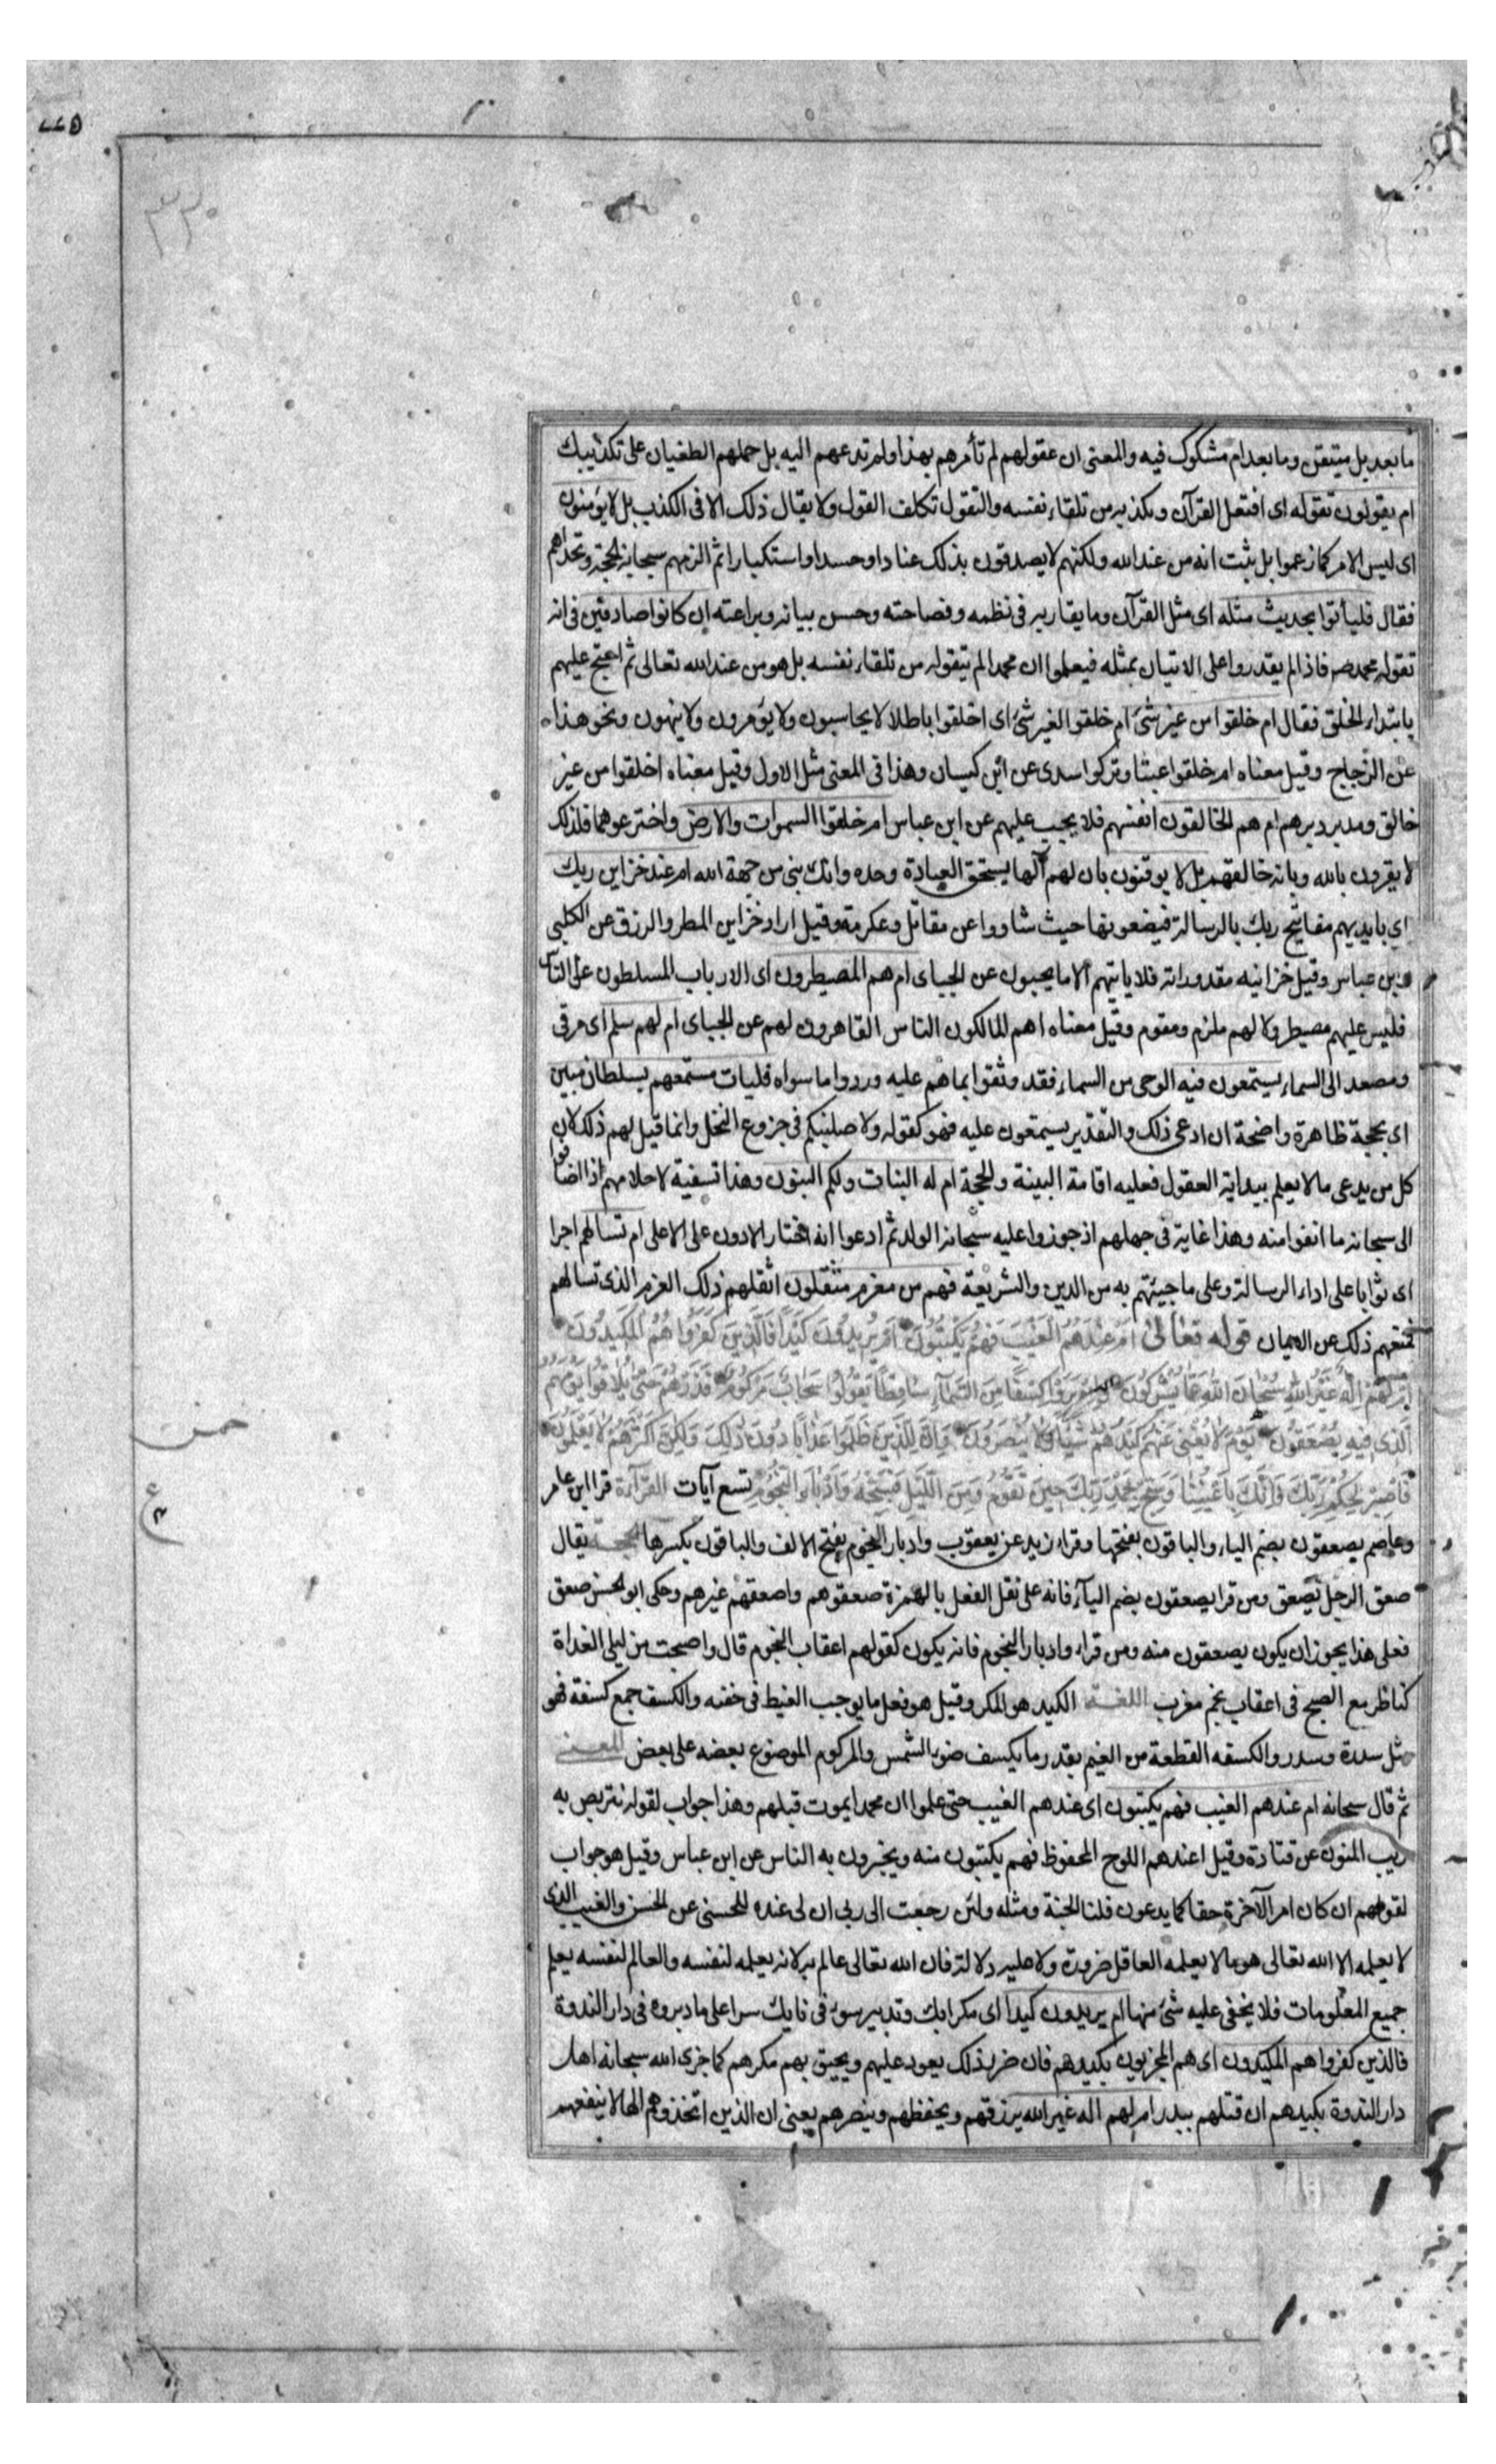 ما بعد بل متيقن وما بعد ام مشكوك فيه والمعنى ان عقولهم لم تأمرهم بهذا ولم تدعهم اليه بل حملهم الطغيان على تكذيبك
ام يقولون تقوله اى افتعل القرآن وتكذبه من تلقاء نفسه والتقول تكلف القول ولا يقال ذلك الا فى الكذب بل لا يؤمنون
اى ليس الامر كما زعموا بل ثبت انه من عند الله ولكنهم لا يصدقون بذلك عنادا وحسدا واستكبارا ثم الزمهم سبحانه الحجة وتحداهم
فقال فليأتوا بحديث مثله اى مثل القرآن وما يقاربه فى نظمه وفصاحته وحسن بيانه وبراعته ان كانوا صادقين فى انه
تقوله محمد ص فاذا لم يقدروا على الاتيان بمثله فيعلموا ان محمدا لم يتقوله من تلقاء نفسه بل هو من عند الله تعالى ثم احتج عليهم
بابتداء الخلق فقال ام خلقوا من غير شئ ام خلقوا لغير شئ اى اخلقوا باطلا لا يحاسبون ولا يؤمرون ولا ينهون ونحو هذا
عن الزجاج وقيل معناه ام خلقوا عبثا وتركوا سدى عن ابن كيسان وهذا فى المعنى مثل الاول وقيل معناه اخلقوا من غير
خالق ومدبر دبرهم ام هم الخالقون انفسهم فلا يجب عليهم عن ابن عباس ام خلقوا السموات والارض واخترعوهما فلذلك
لا يقرون بالله وبانه خالقهم بل لا يوقنون بان لهم آلها يستحق العبادة وحده وانك نبى من جهة الله ام عند خزاين ربك
اى بايديهم مفاتيح ربك بالرسالة فيضعونها حيث شاووا عن مقاتل وعكرمة وقيل اراد خزاين المطر والرزق عن الكلبى
وابن عباس وقيل خزانيه مقدوراته فلا ياتيهم الا ما يحبون عن الجباى ام هم المصيطرون اى الارباب المسلطون على الناس
فليس عليهم مصيطر ولا لهم ملزم ومقوم وقيل معناه اهم المالكون الناس القاهرون لهم عن الجباى ام لهم سلم اى مرقى
ومصعد الى السماء يستمعون فيه الوحى من السماء فقد وثقوا بما هم عليه وردوا ما سواه فليات مستمعهم بسلطان مبين
اى بحجة ظاهرة واضحة ان ادعى ذلك والتقدير يستمعون عليه فهو كقوله ولاصلبنكم فى جزوع النخل وانما قيل لهم ذلك لان
كل من يدعى ما لا يعلم ببداية العقول فعليه اقامة البينة والحجة ام له البنات ولكم البنون وهذا تسفية لاحلامهم اذا اضافوا
الى سبحانه ما انفوا منه وهذا غاية فى جهلهم اذ جوزوا عليه سبحانه الولد ثم ادعوا انه اختار الادون على الاعلى ام تسالهم اجرا
اى ثوابا على اداء الرسالة وعلى ما جيئتهم به من الدين والشريعة فهم من مغرم مثقلون اثقلهم ذلك الغرم الذى تسالهم
فمنعهم ذلك عن الايمان قوله تعالى أَمْ عِنْدَهُمُ الْغَيْبُ فَهُمْ يَكْتُبُونَ أَمْ يُرِيدُونَ كَيْدًا فَالَّذِينَ كَفَرُوا هُمُ الْمَكِيدُونَ
أَمْ لَهُمْ إِلَهٌ غَيْرُ اللَّهِ سُبْحَانَ اللَّهِ عَمَّا يُشْرِكُونَ وَإِنْ يَرَوْا كِسْفًا مِنَ السَّمَآءِ سَاقِطًا يَقُولُوا سَحَابٌ مَرْكُومٌ فَذَرْهُمْ حَتَّى يُلَاقُوا يَوْمَهُمُ
الَّذِى فِيهِ يُصْعَقُونَ يَوْمَ لَا يُغْنِى عَنْهُمْ كَيْدُهُمْ شَيْئًا وَلَا يُنْصَرُونَ وَإِنَّ لِلَّذِينَ ظَلَمُوا عَذَابًا دُونَ ذَلِكَ وَلَكِنَّ أَكْثَرَهُمْ لَا يَعْلَمُونَ
فَاصْبِرْ لِحُكْمِ رَبِّكَ فَإِنَّكَ بِأَعْيُنِنَا وَسَبِّحْ بِحَمْدِ رَبِّكَ حِينَ تَقُومُ وَمِنَ اللَّيْلِ فَسَبِّحْهُ وَإِدْبَارَ النُّجُومِ تسع آيات القراءة قرا ابن عامر
وعاصم يصعقون بضم الياء والباقون بفتحها وقراء زيد عن يعقوب وادبار النجوم بفتح الالف والباقون بكسرها الحجة يقال
صعق الرجل يصعق ومن قرا يصعقون بضم اليآء فانه على نقل الفعل بالهمزة صعقوهم واصعقهم غيرهم وحكى ابو الحسن صعق
فعلى هذا يجوز ان يكون يصعقون منه ومن قراء وادبار النجوم فانه يكون كقولهم اعقاب النجوم قال واصبحت من ليلى الغداة
كناظر مع الصبح فى اعقاب نجم مغرب اللغة الكيد هو المكر وقيل هو فعل ما يوجب الغيظ فى خفيه والكسف جمع كسفة فهو
مثل سدرة وسدر والكسفه القطعة من الغيم بقدر ما يكسف ضوء الشمس والمركوم الموضوع بعضه على بعض المعنى
ثم قال سبحانه ام عندهم الغيب فهم يكتبون اى عندهم الغيب حتى علموا ان محمدا يموت قبلهم وهذا جواب لقوله نتربص به
ريب المنون عن قتادة وقيل اعندهم اللوح المحفوظ فهم يكتبون منه ويخبرون به الناس عن ابن عباس وقيل هو جواب
لقولهم ان كان امر الآخرة حقا كما يدعون فلنا الجنة ومثله ولئن رجعت الى ربى ان لى عنده للحسنى عن الحسن والغيب الذى
لا يعلمه الا الله تعالى هو ما لا يعلمه العاقل ضرورة ولا عليه دلالة فان الله تعالى عالم به لانه يعلمه لنفسه والعالم لنفسه يعلم
جميع المعلومات فلا يخفى عليه شئ منها ام يريدون كيدا اى مكرا بك وتدبير سوء فى نايك سرا على ما دبروه فى دار الندوة
فالذين كفروا هم المكيدون اى هم المجزيون بكيدهم فان ضر ذلك يعود عليهم ويحيق بهم مكرهم كما جزى الله سبحانه اهل
دار الندوة بكيدهم ان قتلهم ببدر ام لهم اله غير الله يرزقهم ويحفظهم وينصرهم يعنى ان الذين اتخذوهم الها لا ينفعهم